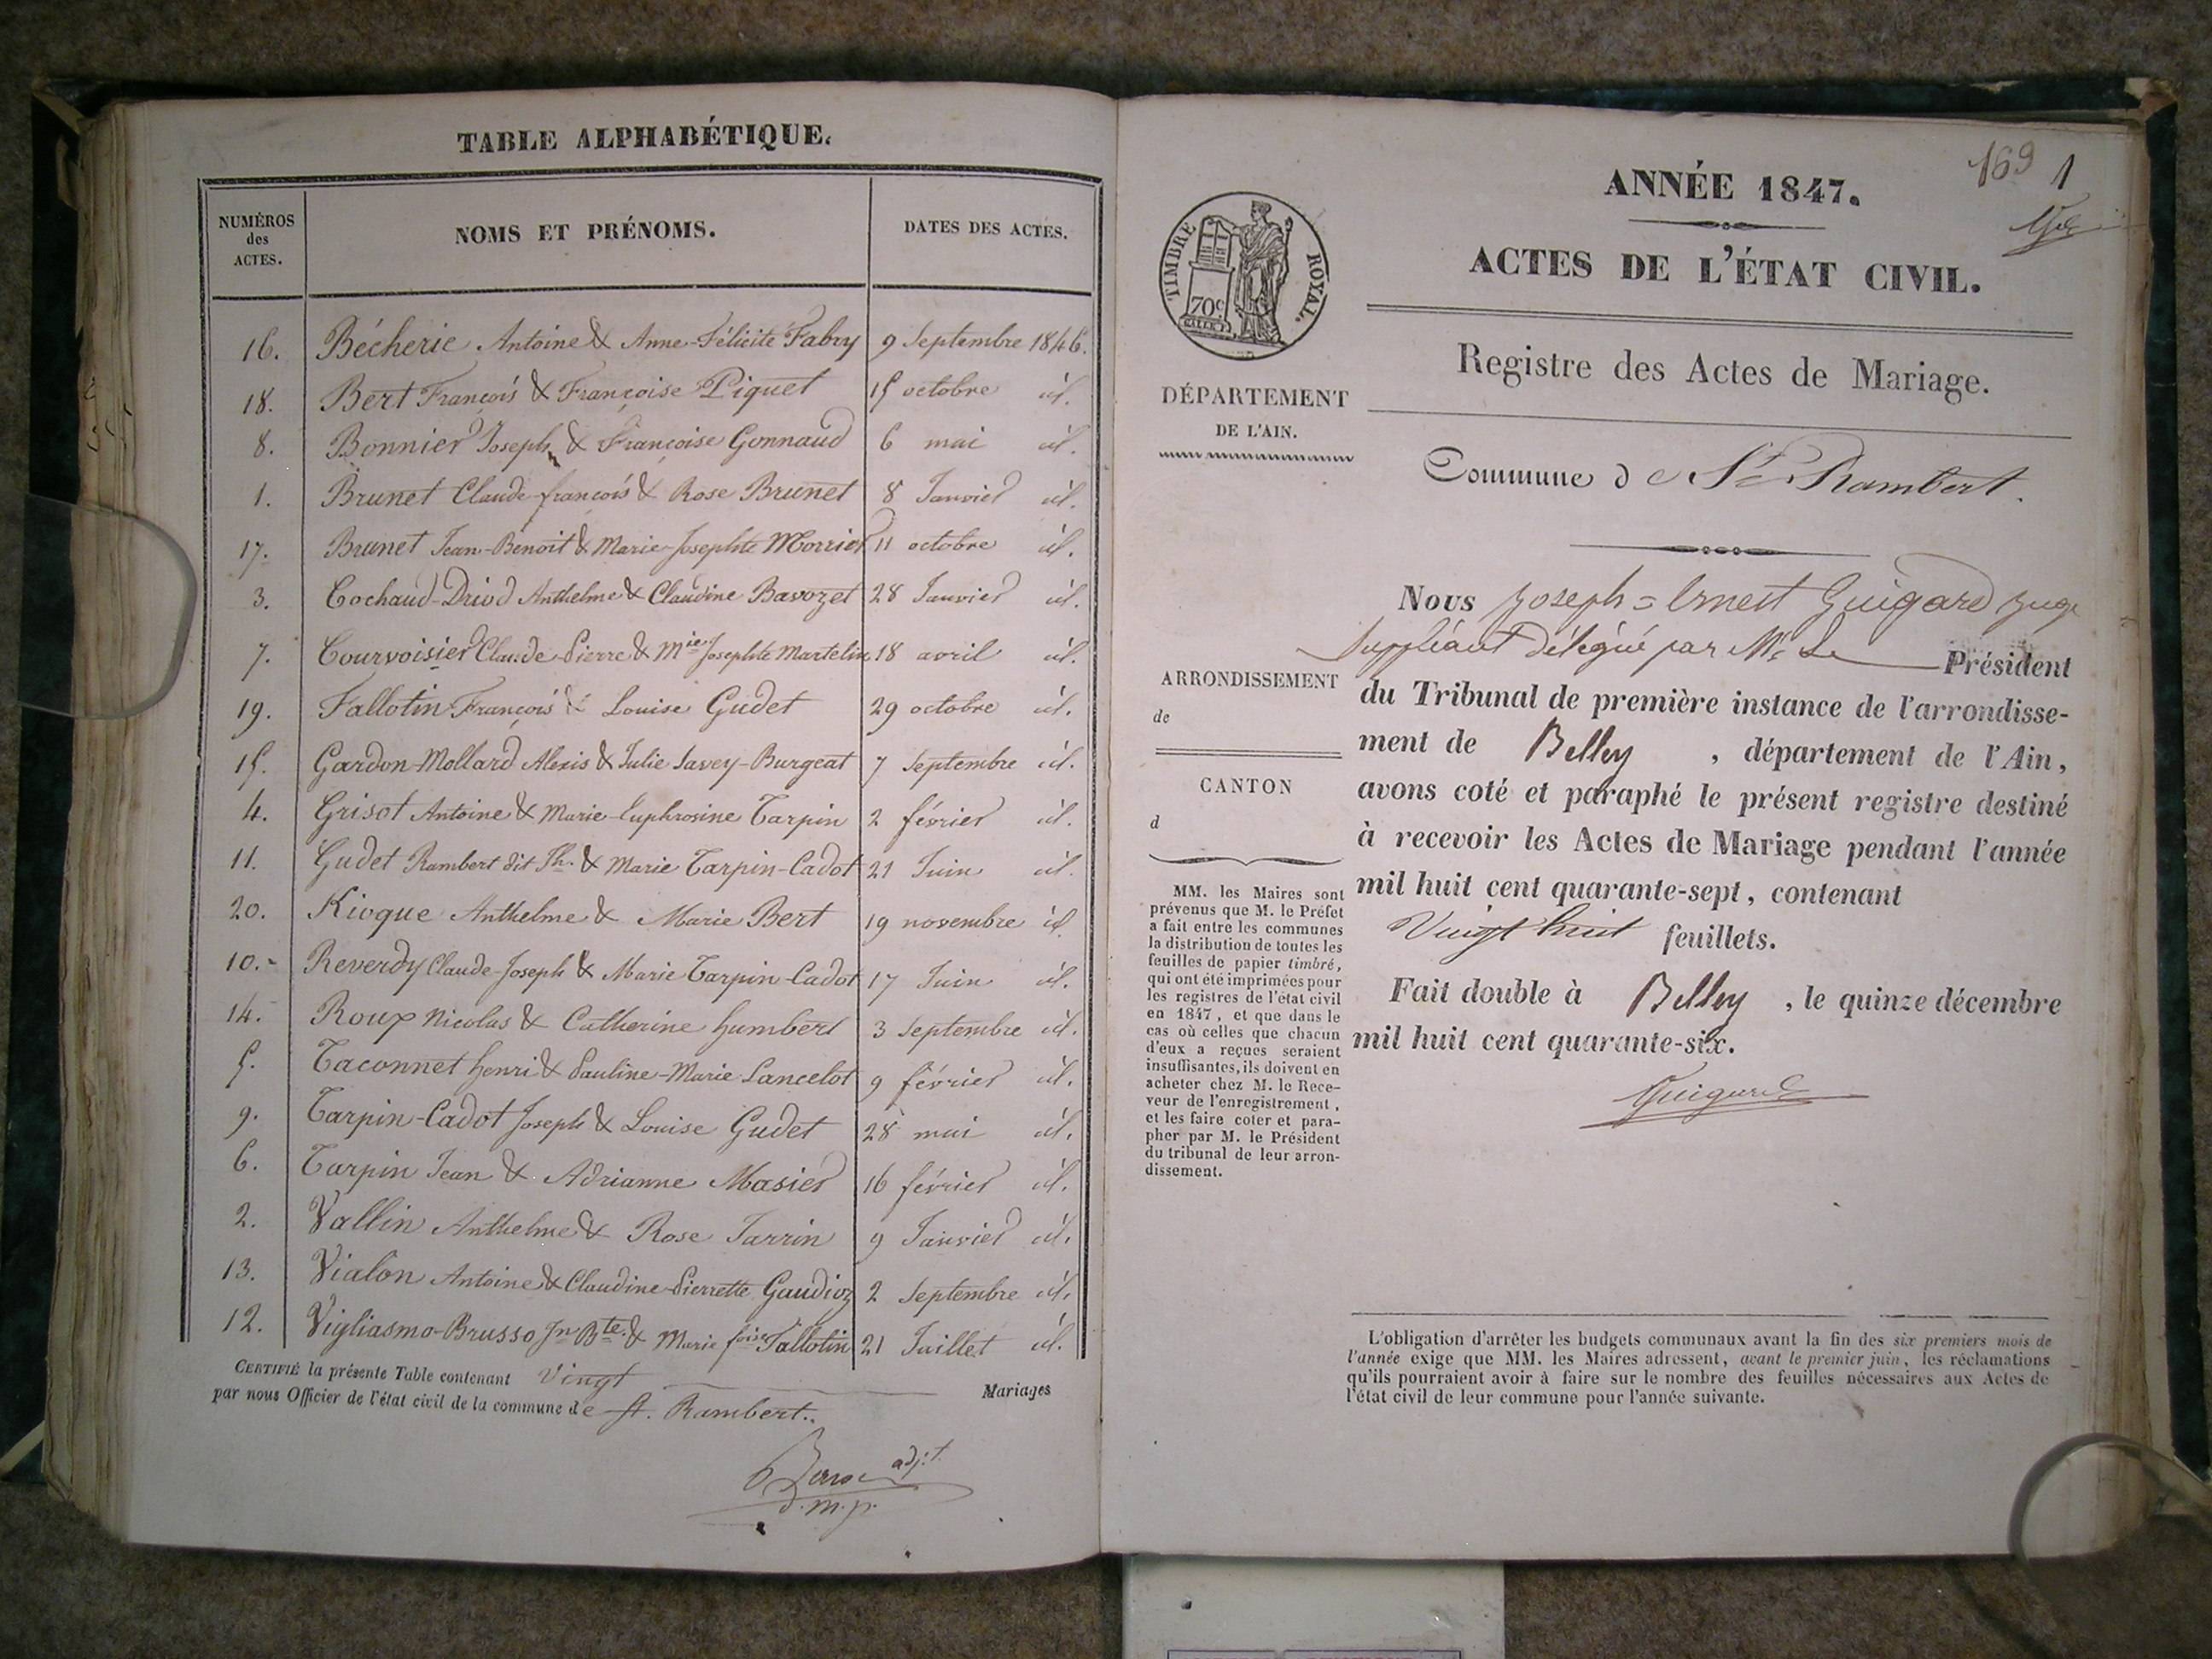 TABLE ALPHABÉTIQUE.
NUMÉROS des ACTES.
NOMS ET PRÉNOMS.
DATES DES ACTES.
16. Bécherie Antoine & Anne-Félicité Fabry 9 Septembre 1846.
18. Bert François & Françoise Piquet 15 octobre id.
8. Bonnier Joseph & Françoise Gonnaud 6 mai id.
1. Brunet Claude-françois & Rose Brunet 8 Janvier id.
17. Brunet Jean-Benoit & Marie-Josephte Morrier 11 octobre id.
3. Cochaud-Driod Anthelme & Claudine Bavozet 28 Janvier id.
7. Courvoisier Claude-Pierre & Mie Josephte Martelin 18 avril id.
19. Fallotin François & Louise Gudet 29 octobre id.
15. Gardon-Mollard Alexis & Julie Savey-Burgeat 7 Septembre id.
4. Grisot Antoine & Marie-Euphrosine Tarpin 2 février id.
11. Gudet Rambert dit Jh. & Marie Tarpin-Cadot 21 Juin id.
20. Kioque Anthelme & Marie Bert 19 novembre id.
10. Reverdy Claude-Joseph & Marie Tarpin-Cadot 17 Juin id.
14. Roux Nicolas & Catherine humbert 3 Septembre id.
5. Taconnet henri & Pauline-Marie Lancelot 9 février id.
9. Tarpin-Cadot Joseph & Louise Gudet 28 mai id.
6. Tarpin Jean & Adrianne Masier 16 février id.
2. Vallin Anthelme & Rose Jarrin 9 Janvier id.
13. Vialon Antoine & Claudine-Pierrette Gaudioz 2 Septembre id.
12. Vigliasmo-Brusso Jn Bte. & Marie foise Fallotin 21 Juillet id.
CERTIFIÉ la présente Table contenant Vingt Mariages
par nous Officier de l'état civil de la commune de St. Rambert.
adj.t
d.m.p.
169 1
ANNÉE 1847.
ACTES DE L'ÉTAT CIVIL.
TIMBRE ROYAL.
70c
Registre des Actes de Mariage.
DÉPARTEMENT
DE L'AIN.
Commune de St Rambert.
Nous Joseph=Ernest Guigard juge
suppléant délégué par Mr Le Président
du Tribunal de première instance de l'arrondisse-
ment de Belley, département de l'Ain,
avons coté et paraphé le présent registre destiné
à recevoir les Actes de Mariage pendant l'année
mil huit cent quarante-sept, contenant
Vingt huit feuillets.
Fait double à Belley, le quinze décembre
mil huit cent quarante-six.
Guigard
ARRONDISSEMENT
de
CANTON
d
MM. les Maires sont
prévenus que M. le Préfet
a fait entre les communes
la distribution de toutes les
feuilles de papier timbré,
qui ont été imprimées pour
les registres de l'état civil
en 1847, et que dans le
cas où celles que chacun
d'eux a reçues seraient
insuffisantes, ils doivent en
acheter chez M. le Rece-
veur de l'enregistrement,
et les faire coter et para-
pher par M. le Président
du tribunal de leur arron-
dissement.
L'obligation d'arrêter les budgets communaux avant la fin des six premiers mois de
l'année exige que MM. les Maires adressent, avant le premier juin, les réclamations
qu'ils pourraient avoir à faire sur le nombre des feuilles nécessaires aux Actes de
l'état civil de leur commune pour l'année suivante.